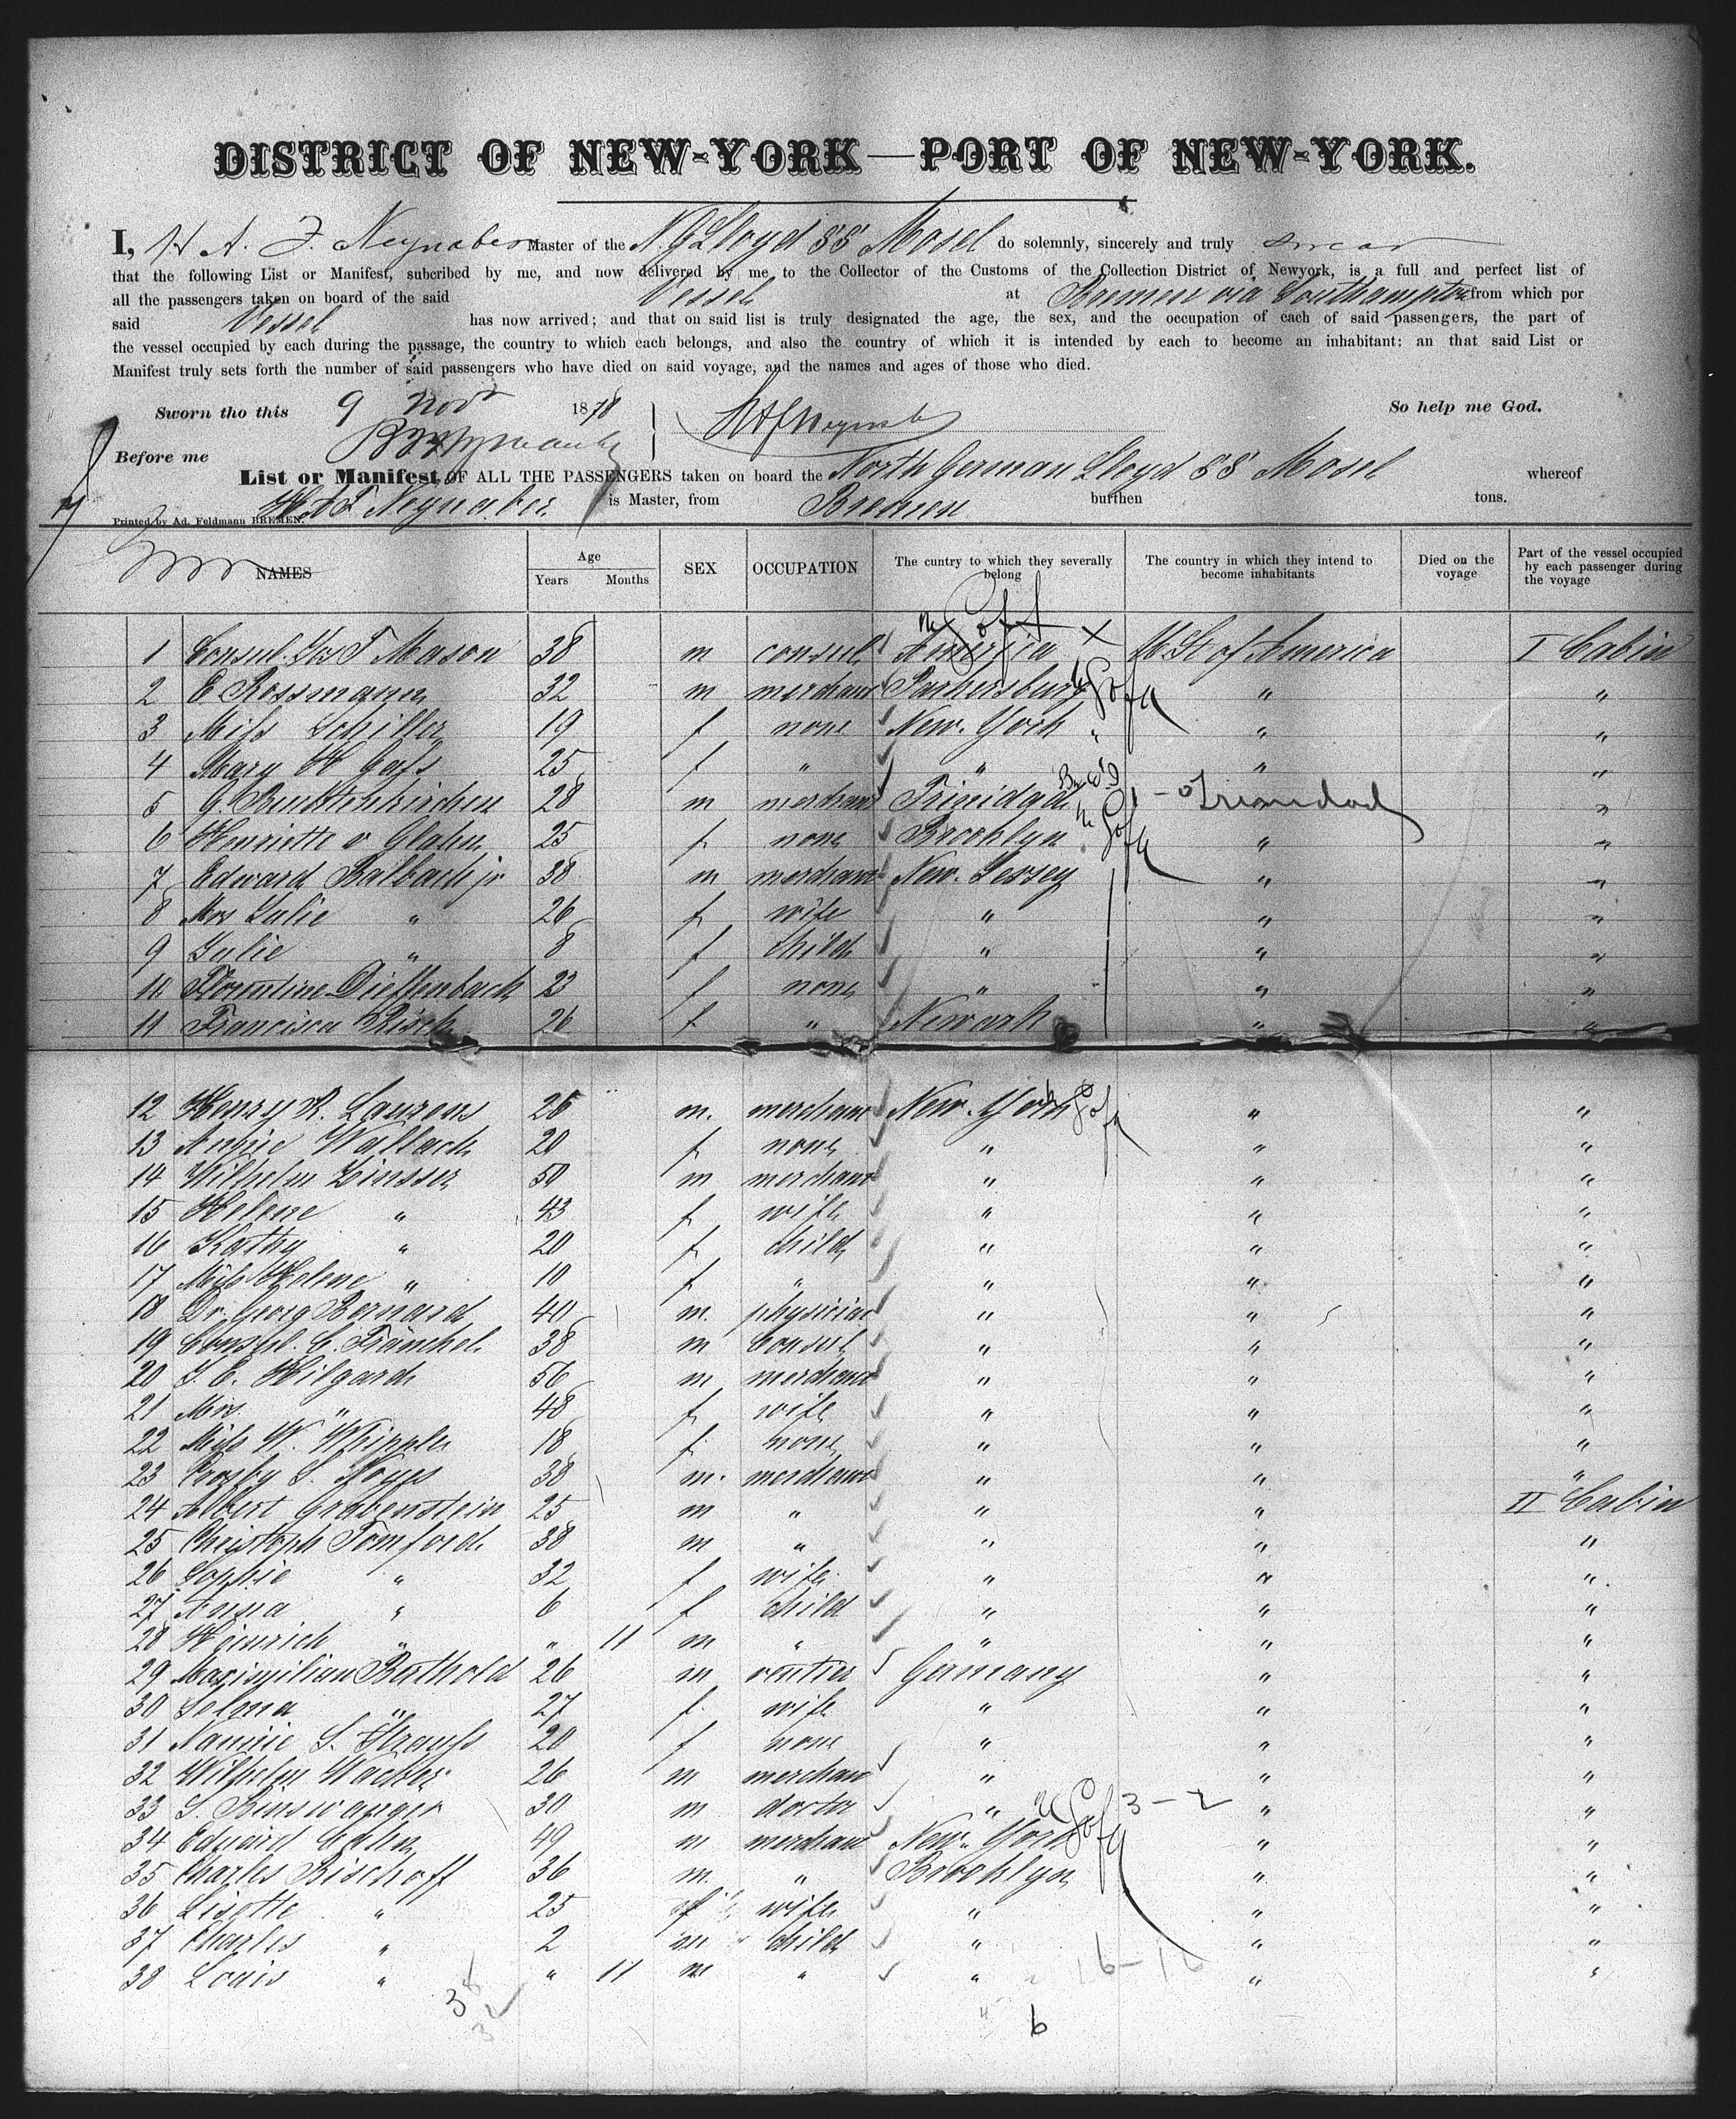 DISTRICT OF NEW-YORK—PORT OF NEW-YORK.
I, H. A. F. Neynaber Master of the N. G. Lloyd SS Mosel do solemnly, sincerely and truly swear
that the following List or Manifest, subcribed by me, and now delivered by me to the Collector of the Customs of the Collection District of Newyork, is a full and perfect list of
all the passengers taken on board of the said Vessel at Bremen via Southampton from which por
said Vessel has now arrived; and that on said list is truly designated the age, the sex, and the occupation of each of said passengers, the part of
the vessel occupied by each during the passage, the country to which each belongs, and also the country of which it is intended by each to become an inhabitant: an that said List or
Manifest truly sets forth the number of said passengers who have died on said voyage, and the names and ages of those who died.
Sworn tho this 9 Novr 1878 HAFNeynaber So help me God.
Before me
List or Manifest, OF ALL THE PASSENGERS taken on board the North German Lloyd SS Mosel whereof
H. A. F. Neynaber is Master, from Bremen burthen tons.
Printed by Ad. Feldmann BREMEN.
NAMES Age Years Months SEX OCCUPATION The cuntry to which they severally belong The country in which they intend to become inhabitants Died on the voyage Part of the vessel occupied by each passenger during the voyage
1 Consul Mason 38 m consul America U. St of America I Cabin
2 E. Rossmann 32 m merchant Parkersburg " "
3 Miss Schiller 19 f none New-York " "
4 Mary H Gass 25 f " " " "
5 G. 28 m merchant Trinidad Trinidad "
6 Henriette v Glahn 25 f none Brooklyn " "
7 Edward Balbach jr 38 m merchant New-Jersey " "
8 Mrs Julie " 26 f wife " " "
9 Julie " 8 f child " " "
10 Florentine Dieffenbach 23 f none " " "
11 Francisca Risch 26 f " Newark " "
12 Henry R. Laurens 26 m. merchant New-York " "
13 Annie Wallach 20 f none " " "
14 Wilhelm Zinsser 50 m merchant " " "
15 Helene " 43 f wife " " "
16 Kathy " 20 f child " " "
17 Miss Helene " 10 f " " " "
18 Dr. Georg Bernard 40 m. physician " " "
19 Consul. C. Fränckel 38 m Consul " " "
20 J. E. Hilgard 56 m merchant " " "
21 Mrs. " 48 f wife " " "
22 Miss W. Whipple 18 f. none " " "
23 Crosby S. Noyes 38 m. merchant " " "
24 Albert Grabenstein 25 m " " " II Cabin
25 Christoph Tomford 38 m " " " "
26 Sophie " 32 f wife " " "
27 Anna " 6 f child " " "
28 Heinrich " " 11 m " " " "
29 Maximilian Berthold 26 m rentier Germany " "
30 Selma " 27 f. wife " " "
31 Nannie S. Strauss 20 f none " " "
32 Wilhelm Wacker 26 m merchant " " "
33 S. Binswanger 30 m doctor " " "
34 Eduard Cahn 49 m merchant New-York " "
35 Charles Bischoff 36 m. " Brooklyn " "
36 Lisette " 25 f wife " " "
37 Charles " 2 m child " " "
38 Louis " " 11 m " " " "
38
32
16-16
6